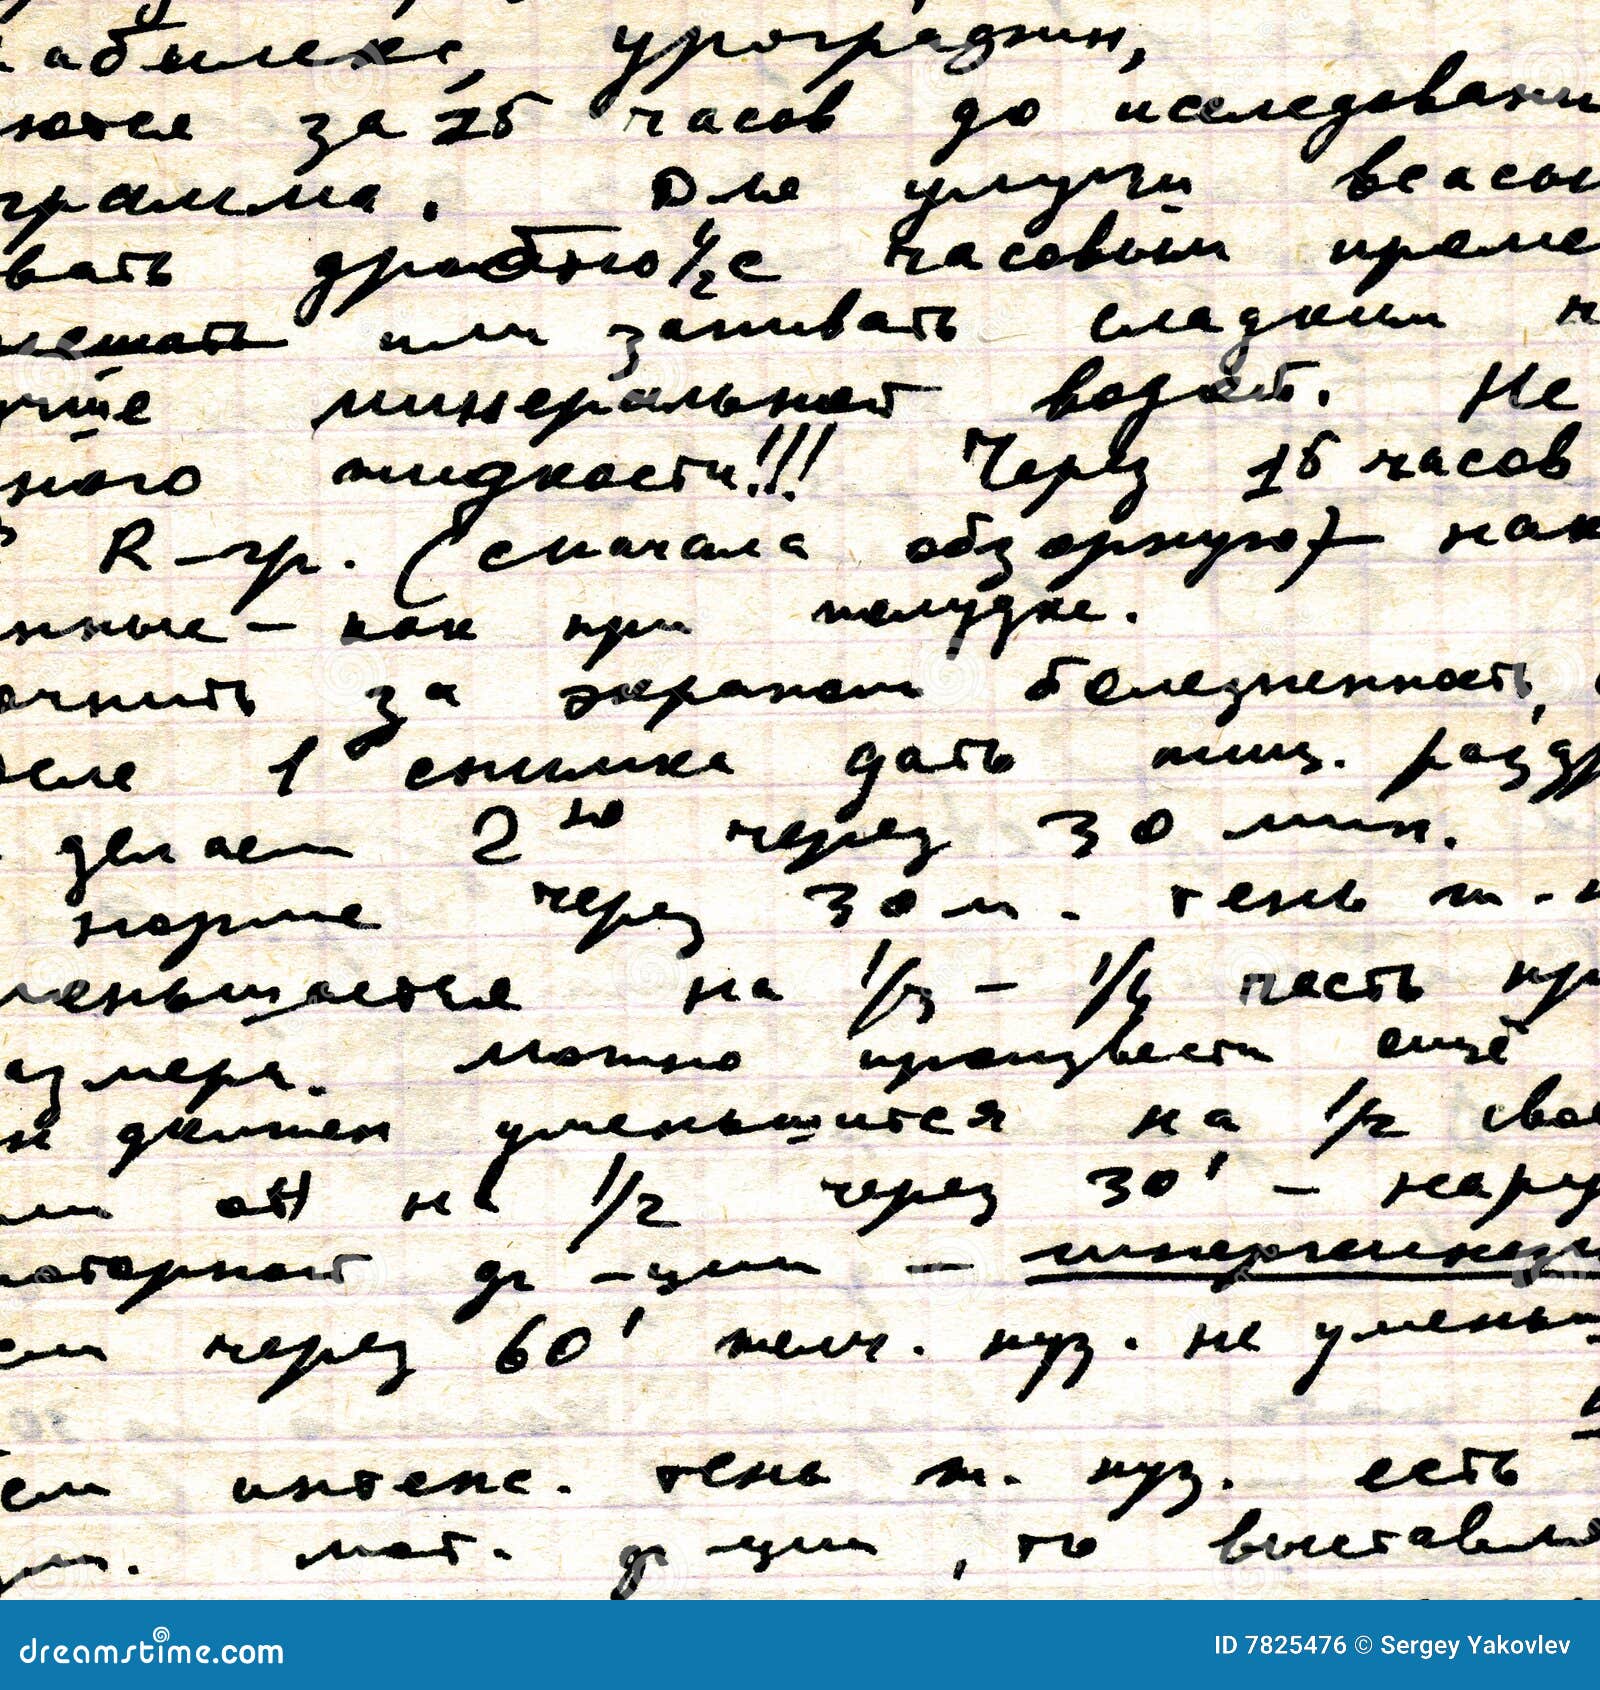 абилекс, урографин,
ются за 15 часов до исследован
грамма. Для улучш всасы
вать дробно 1/2 с часовым проме
мешать или запивать сладким ч
учше минеральной водой. Не
ного жидкости!!! Через 15 часов
R-гр. (сначала обзорную) нак
нные - как при желудке.
очнить за экраном болезненность,
осле 1 снимка дать пищ. раздр
делаем 2ю через 30 мин.
норме через 30 м. тень ж. п
меньшается на 1/3 - 1/4 часть пр
азмера. Можно произвести ещё
н должен уменьшится на 1/2 свое
ли он на 1/2 через 30' - нару
моторной ф-ции - гиперкинез
ли через 60' желч. пуз. не уменьш
ли интенс. тень ж. пуз. есть
мот. ф-ции, то выставля
dreamstime.com
ID 7825476 © Sergey Yakovlev